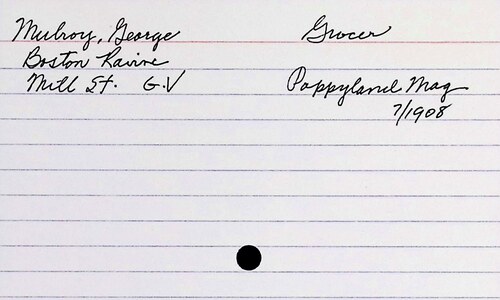 Mulroy, George
Grocer
Boston Ravine
Mill St. G.V
Poppyland Mag
7/1908